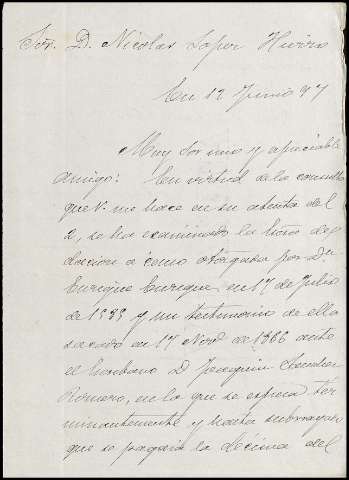 Sor. D. Nicolas Lopez
En 12 Junio 97
Muy Sor mio y apreciable
amigo: En virtud de la consulta
que V. me hace en su atenta del
2, se ha examinado la
dacion a censo otorgada por Dn
Enrique Enriquez en 17 de Julio
de 1593 y un testimonio de ella
sacado en 17 Novre de 1866 ante
el Escribano D Joaquin
Romero, en la que se espresa ter
minantemente y hasta subrayado
que se pagaria la decima del